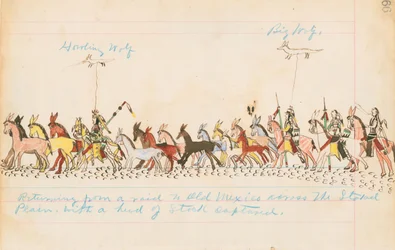 Howling Wolf
Big Wolf.
Returning from a raid to Old Mexico across the Staked
Plain. With a herd of Stock captured.